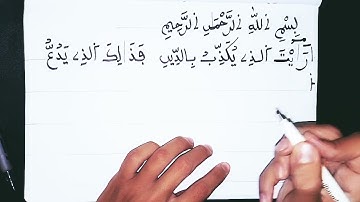 بِسْمِ اِ۬للَّهِ اِ۬لرَّحْمَٰنِ اِ۬لرَّحِيمِ
أَرَٰٓيْتَ اَ۬لذِے يُكَذِّبُ بِالدِّينِ فَذَٰلِكَ اَ۬لذِے يَدُعُّ